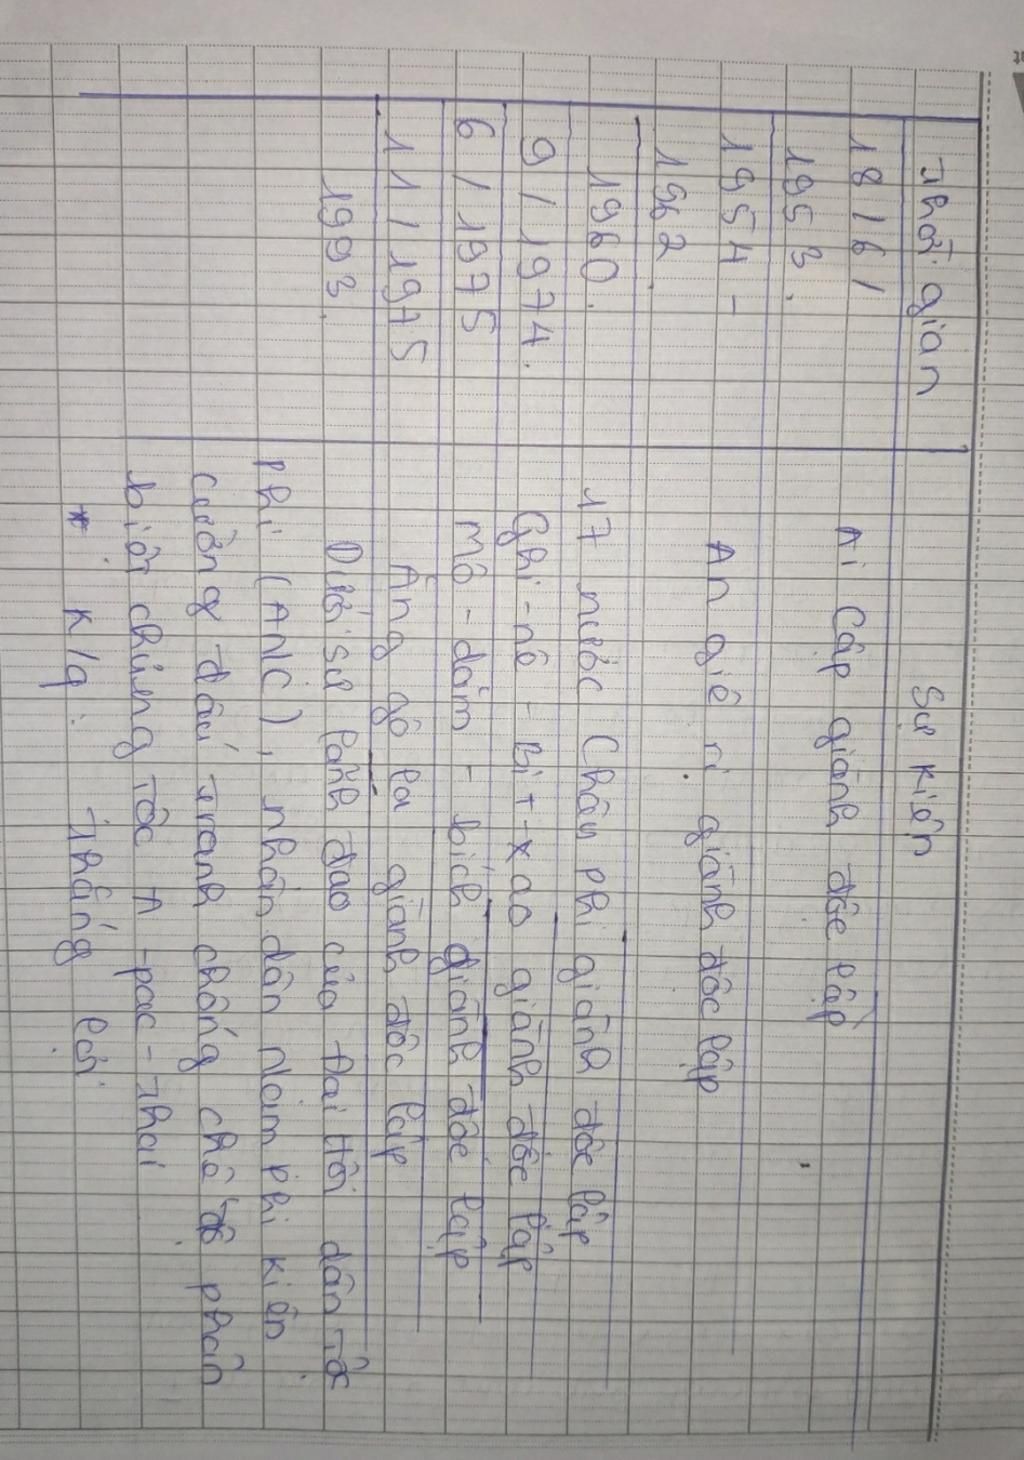 Thời gian Sự kiện
18/6/ Ai Cập giành độc lập
1953.
1954 - An giê ri giành độc lập
1962
1960. 17 nước Châu Phi giành độc lập
9/1974. Ghi-nê-Bit-xao giành độc lập
6/1975 Mô-dăm-bích giành độc lập
11/1975 Ăng gô la giành độc lập
1993. Dưới sự lãnh đạo của Đại Hội dân tộc
Phi (ANC), nhân dân Nam Phi kiên
cường đấu tranh chống chế độ phân
biệt chủng tộc A-pac-thai
* K/q: Thắng lợi